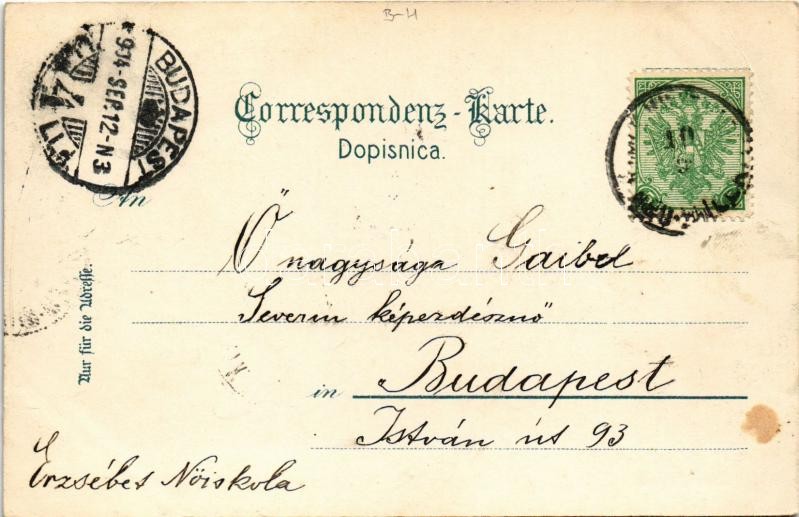 B-H
BUDAPEST
904 SEP. 12-N3
Correspondenz-Karte.
Dopisnica.
An
Ő nagysága Gaibel
Severin képezdésznő
in Budapest
István út 93
Erzsébet Nőiskola
Nur für die Adresse.